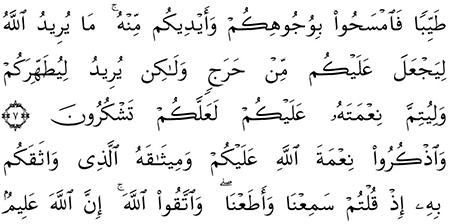 طَيِّبًا فَٱمْسَحُوا۟ بِوُجُوهِكُمْ وَأَيْدِيكُم مِّنْهُ ۚ مَا يُرِيدُ ٱللَّهُ
لِيَجْعَلَ عَلَيْكُم مِّنْ حَرَجٍ وَلَـٰكِن يُرِيدُ لِيُطَهِّرَكُمْ
وَلِيُتِمَّ نِعْمَتَهُۥ عَلَيْكُمْ لَعَلَّكُمْ تَشْكُرُونَ ﴿٧﴾
وَٱذْكُرُوا۟ نِعْمَةَ ٱللَّهِ عَلَيْكُمْ وَمِيثَـٰقَهُ ٱلَّذِى وَاثَقَكُم
بِهِۦٓ إِذْ قُلْتُمْ سَمِعْنَا وَأَطَعْنَا ۖ وَٱتَّقُوا۟ ٱللَّهَ ۚ إِنَّ ٱللَّهَ عَلِيمٌۢ